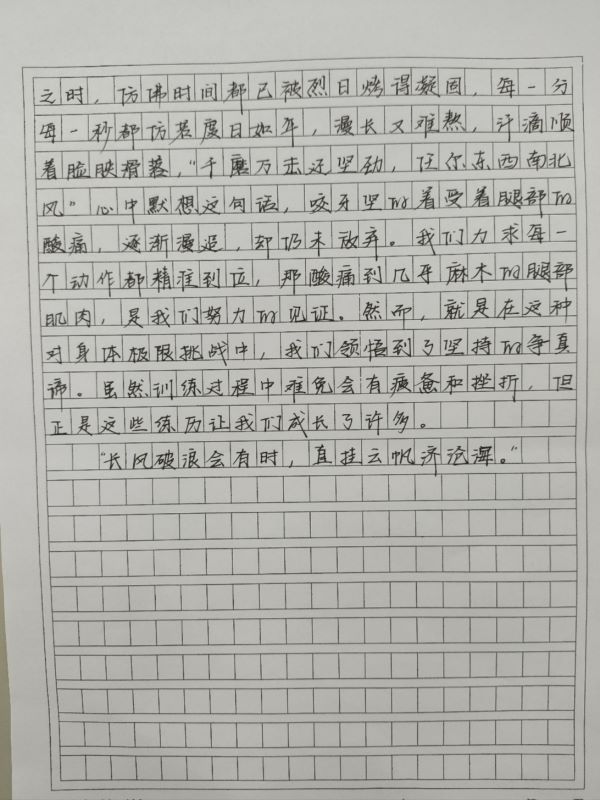 之时，仿佛时间都已被烈日烤得凝固，每一分
每一秒都仿若度日如年，漫长又难熬，汗滴顺
着脸腴滑落，“千磨万击还坚劲，任尔东西南北
风”心中默想这句话，咬牙坚的着受着腿部的
酸痛，逐渐漫延，却仍未放弃。我们力求每一
个动作都精准到位，那酸痛到几乎麻木的腿部
肌肉，是我们努力的见证。然而，就是在这种
对身体极限挑战中，我们领悟到了坚持的争真
谛。虽然训练过程中难免会有疲惫和挫折，但
正是这些练历让我们成长了许多。
“长风破浪会有时，直挂云帆济沧海。”